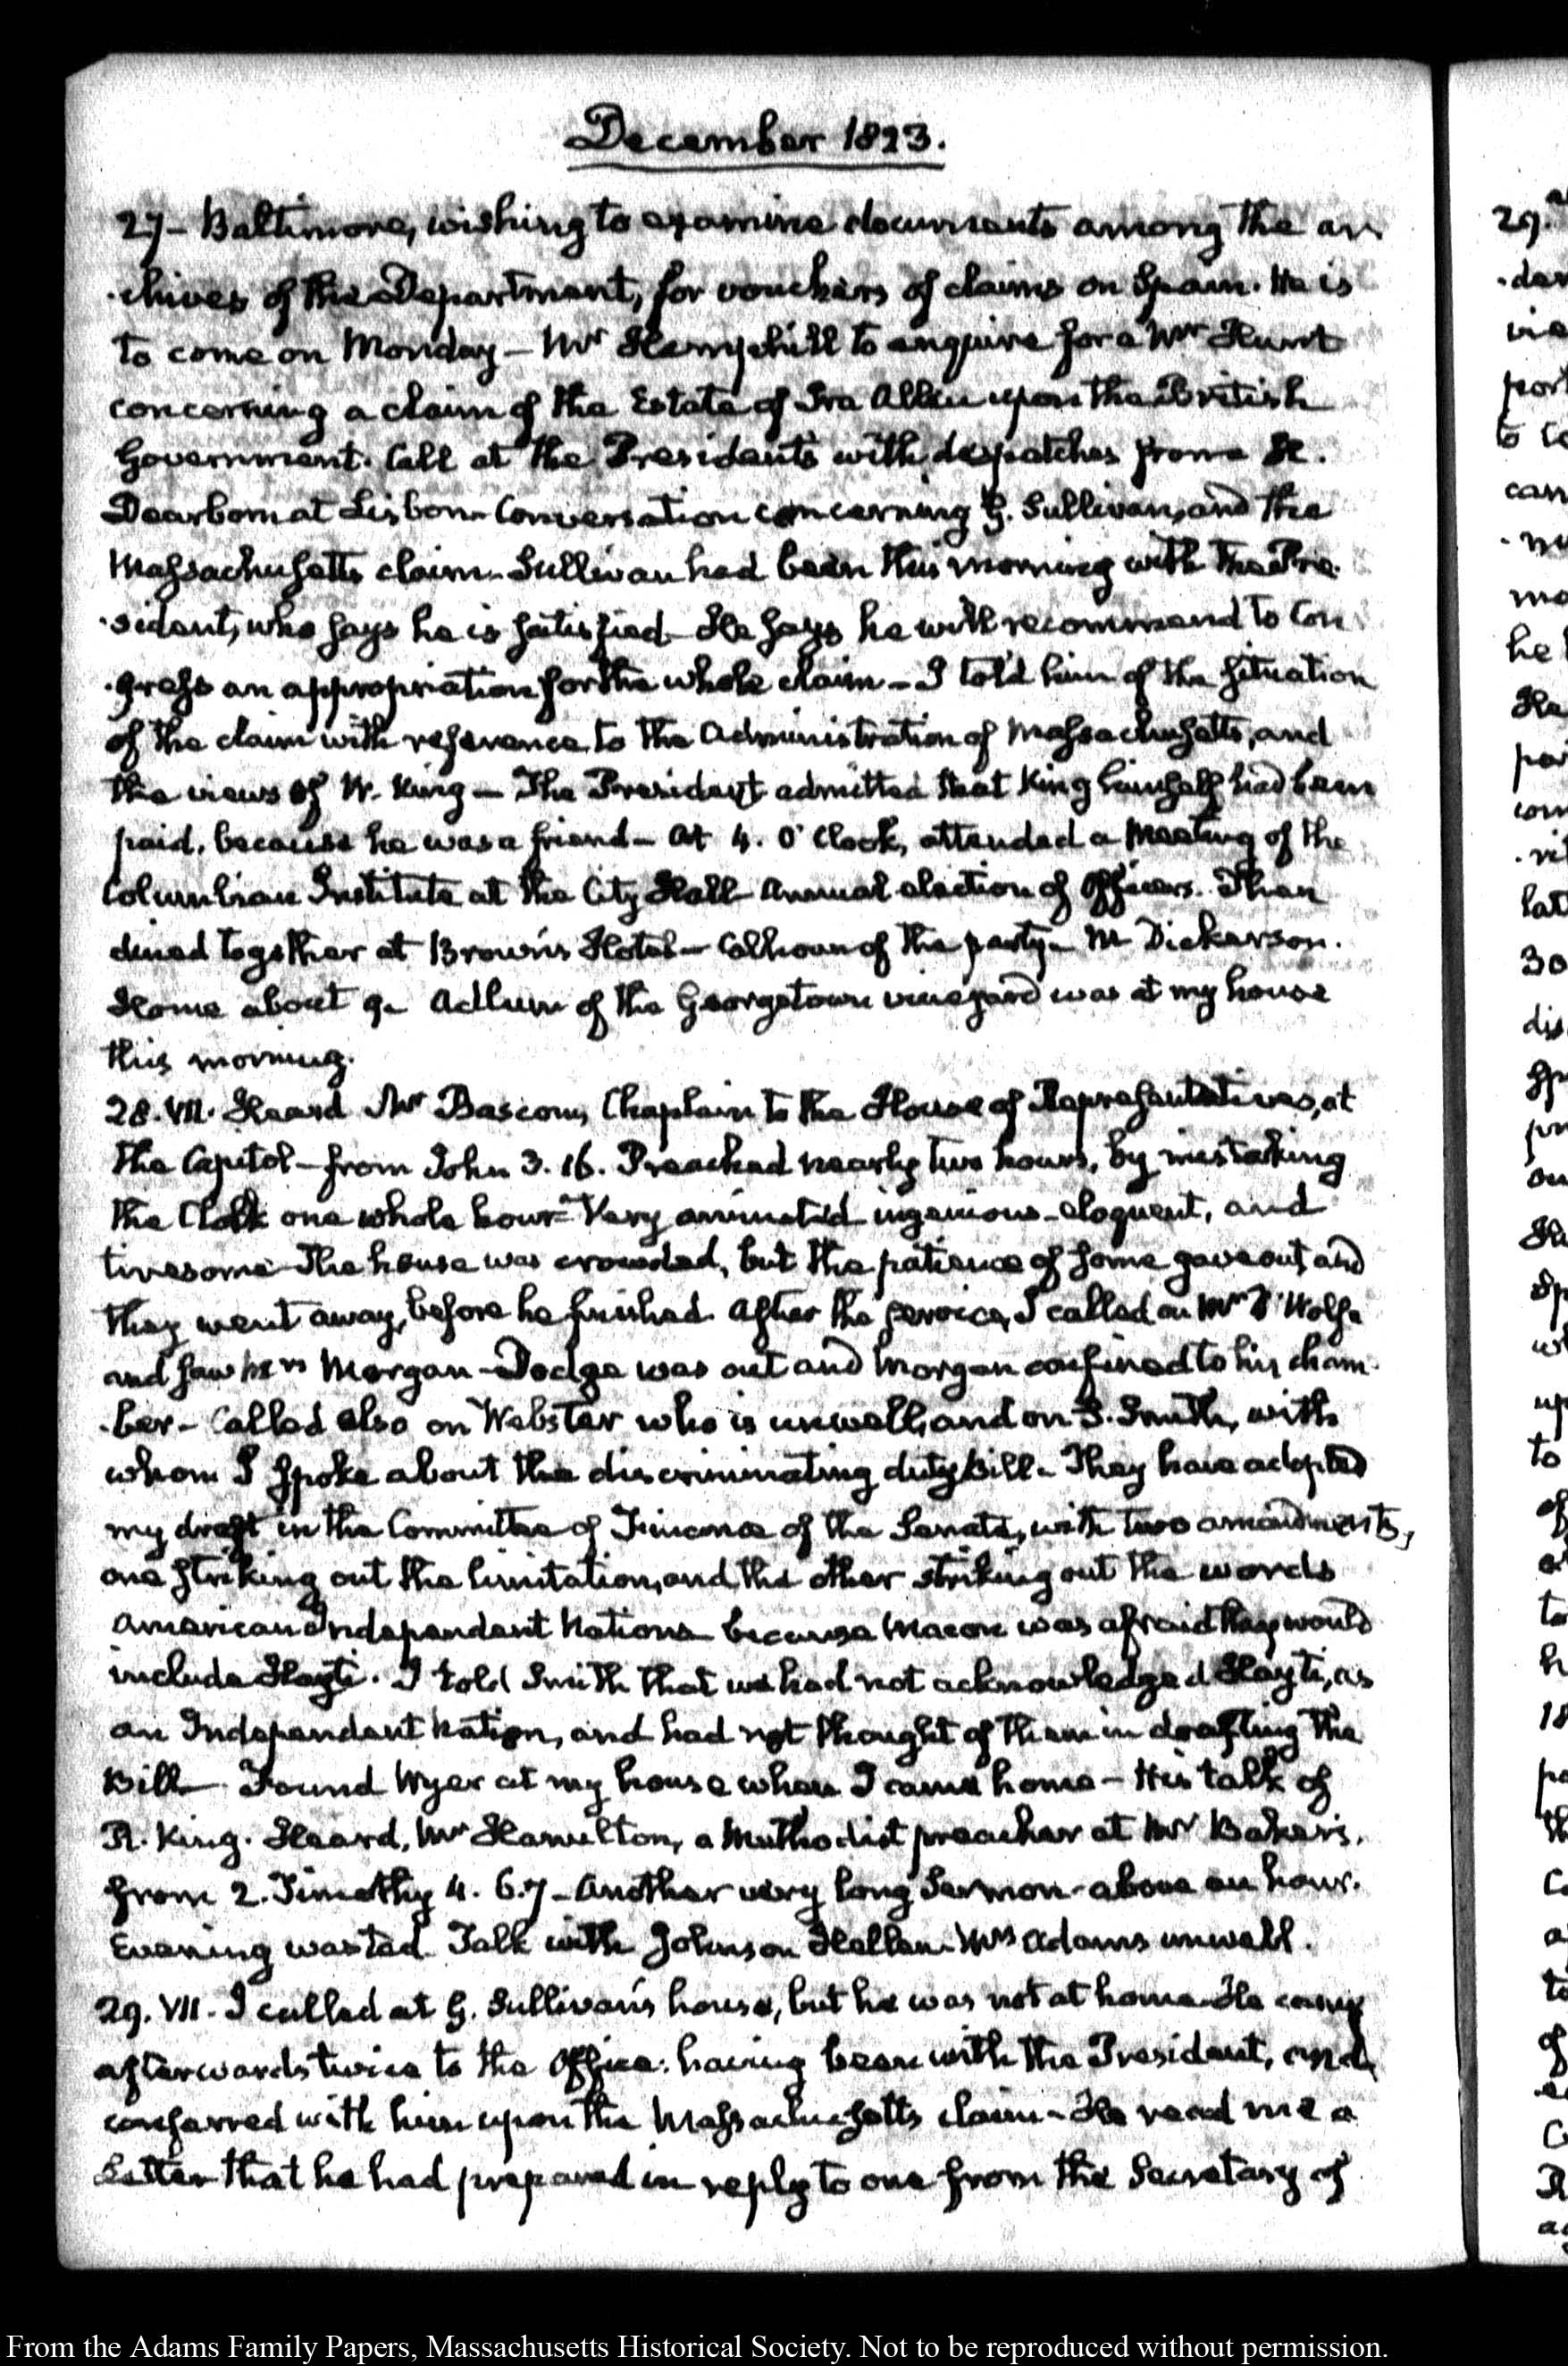 December 1823.
27- Baltimore, wishing to examine documents among the ar
-chives of the Department, for vouchers of claims on Spain. He is
to come on Monday - Mr Hemphill to enquire for a Mr Hunt
concerning a claim of the Estate of Ira Allen upon the British
Government. Call at the Presidents with despatches from H.
Dearborn at Lisbon - Conversation concerning G. Sullivan, and the
Massachusetts claim - Sullivan had been this morning with the Pre-
-sident, who says he is satisfied - He says he will recommend to Con
-gress an appropriation for the whole claim - I told him of the situation
of the claim with reference to the Administration of Massachusetts, and
the views of W. King - The President admitted that King himself had been
paid, because he was a friend - At 4. O'Clock, attended a Meeting of the
Columbian Institute at the City Hall Annual election of Officers. Then
dined together at Brown's Hotel - Calhoun of the party - M Dickerson.
Home about 9 - Adlum of the Georgetown vineyard was at my house
this morning.
28. VII. Heard Mr Bascom, Chaplain to the House of Representatives, at
the Capitol - from John 3. 16. Preached nearly two hours, by mistaking
the Clock one whole hour - Very animated ingenious - eloquent, and
tiresome - The house was crowded, but the patience of some gave out, and
they went away, before he finished. After the service, I called on Mr D'Wolfe
and saw Mrs Morgan - Dodge was out and Morgan confined to his cham-
-ber - Called also on Webster who is unwell, and on S. Smith, with
whom I spoke about the discriminating duty Bill - They have adopted
my draft in the Committee of Finance of the Senate, with two amendments,
one striking out the limitation, and the other striking out the words
American Independent Nations because Macon was afraid they would
include Hayti. I told Smith that we had not acknowledged Hayti, as
an Independent Nation, and had not thought of them in drafting the
Bill - Found Wyer at my house when I came home - His talk of
R. King. Heard, Mr Hamilton, a Methodist preacher at Mr Baker's.
from 2. Timothy 4. 6.7 - Another very long Sermon - above an hour.
Evening wasted. Talk with Johnson Hellen - Mrs Adams unwell.
29. VII. I called at G. Sullivan's house, but he was not at home - He came
afterwards twice to the Office: having been with the President, and
conferred with him upon the Massachusetts claim - He read me a
Letter that he had prepared in reply to one from the Secretary of
29.
to
can
he
30
18
to
of
From the Adams Family Papers, Massachusetts Historical Society. Not to be reproduced without permission.